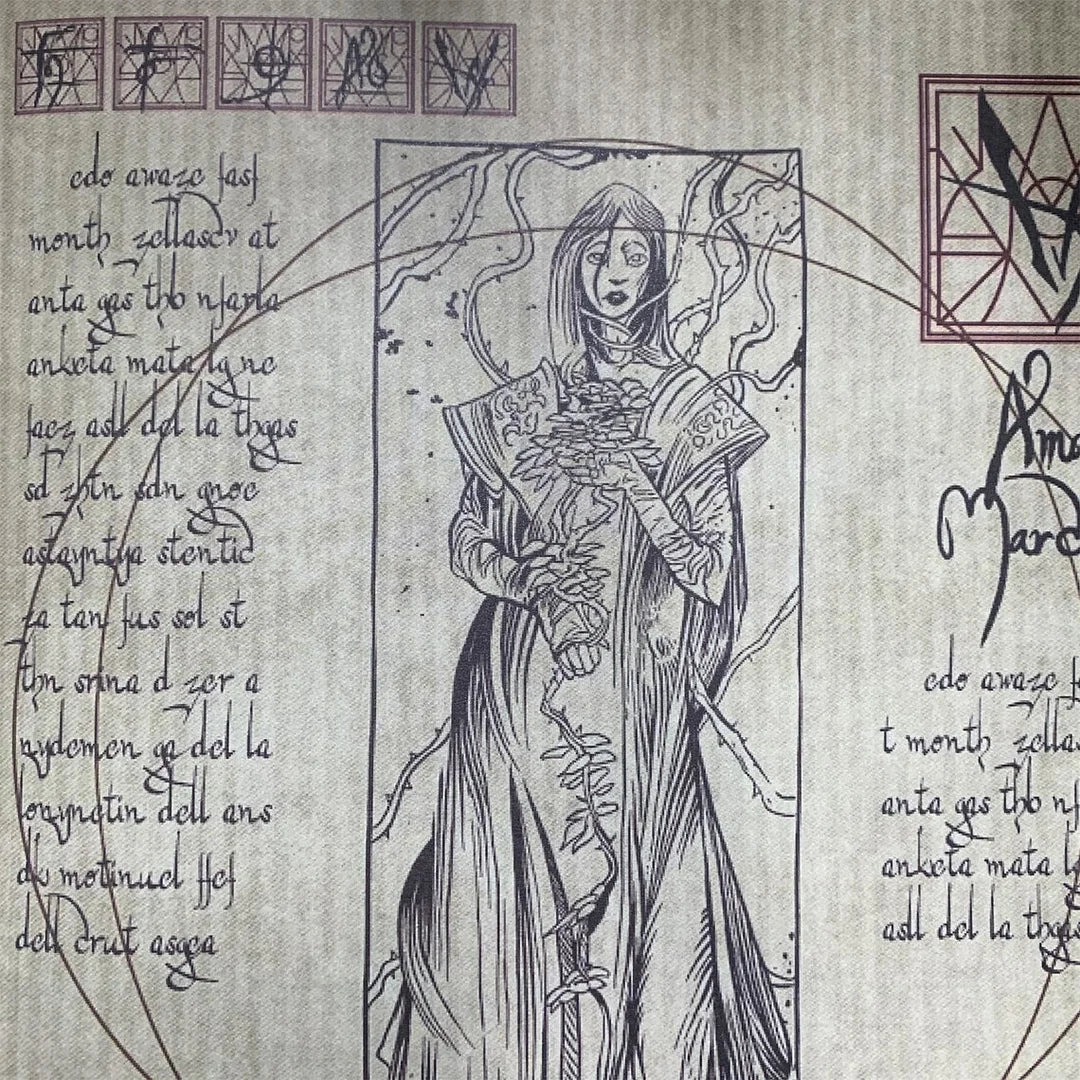 h f g AS W
edo awaze fasf
month zellasev at
anta gas thb nfarla
anketa mata lg ne
faez asll del la thgas
sd zhtn sdn gnoe
astayntya stentic
za tan fus sol st
thn srina d zer a
nydemen ga del la
onyngtin dell ans
motinuel ffef
dell Crut asgea
Ama
Marc
edo awaze fa
t month zellas
anta gas thb nf
anketa mata lg
asll del la thgas